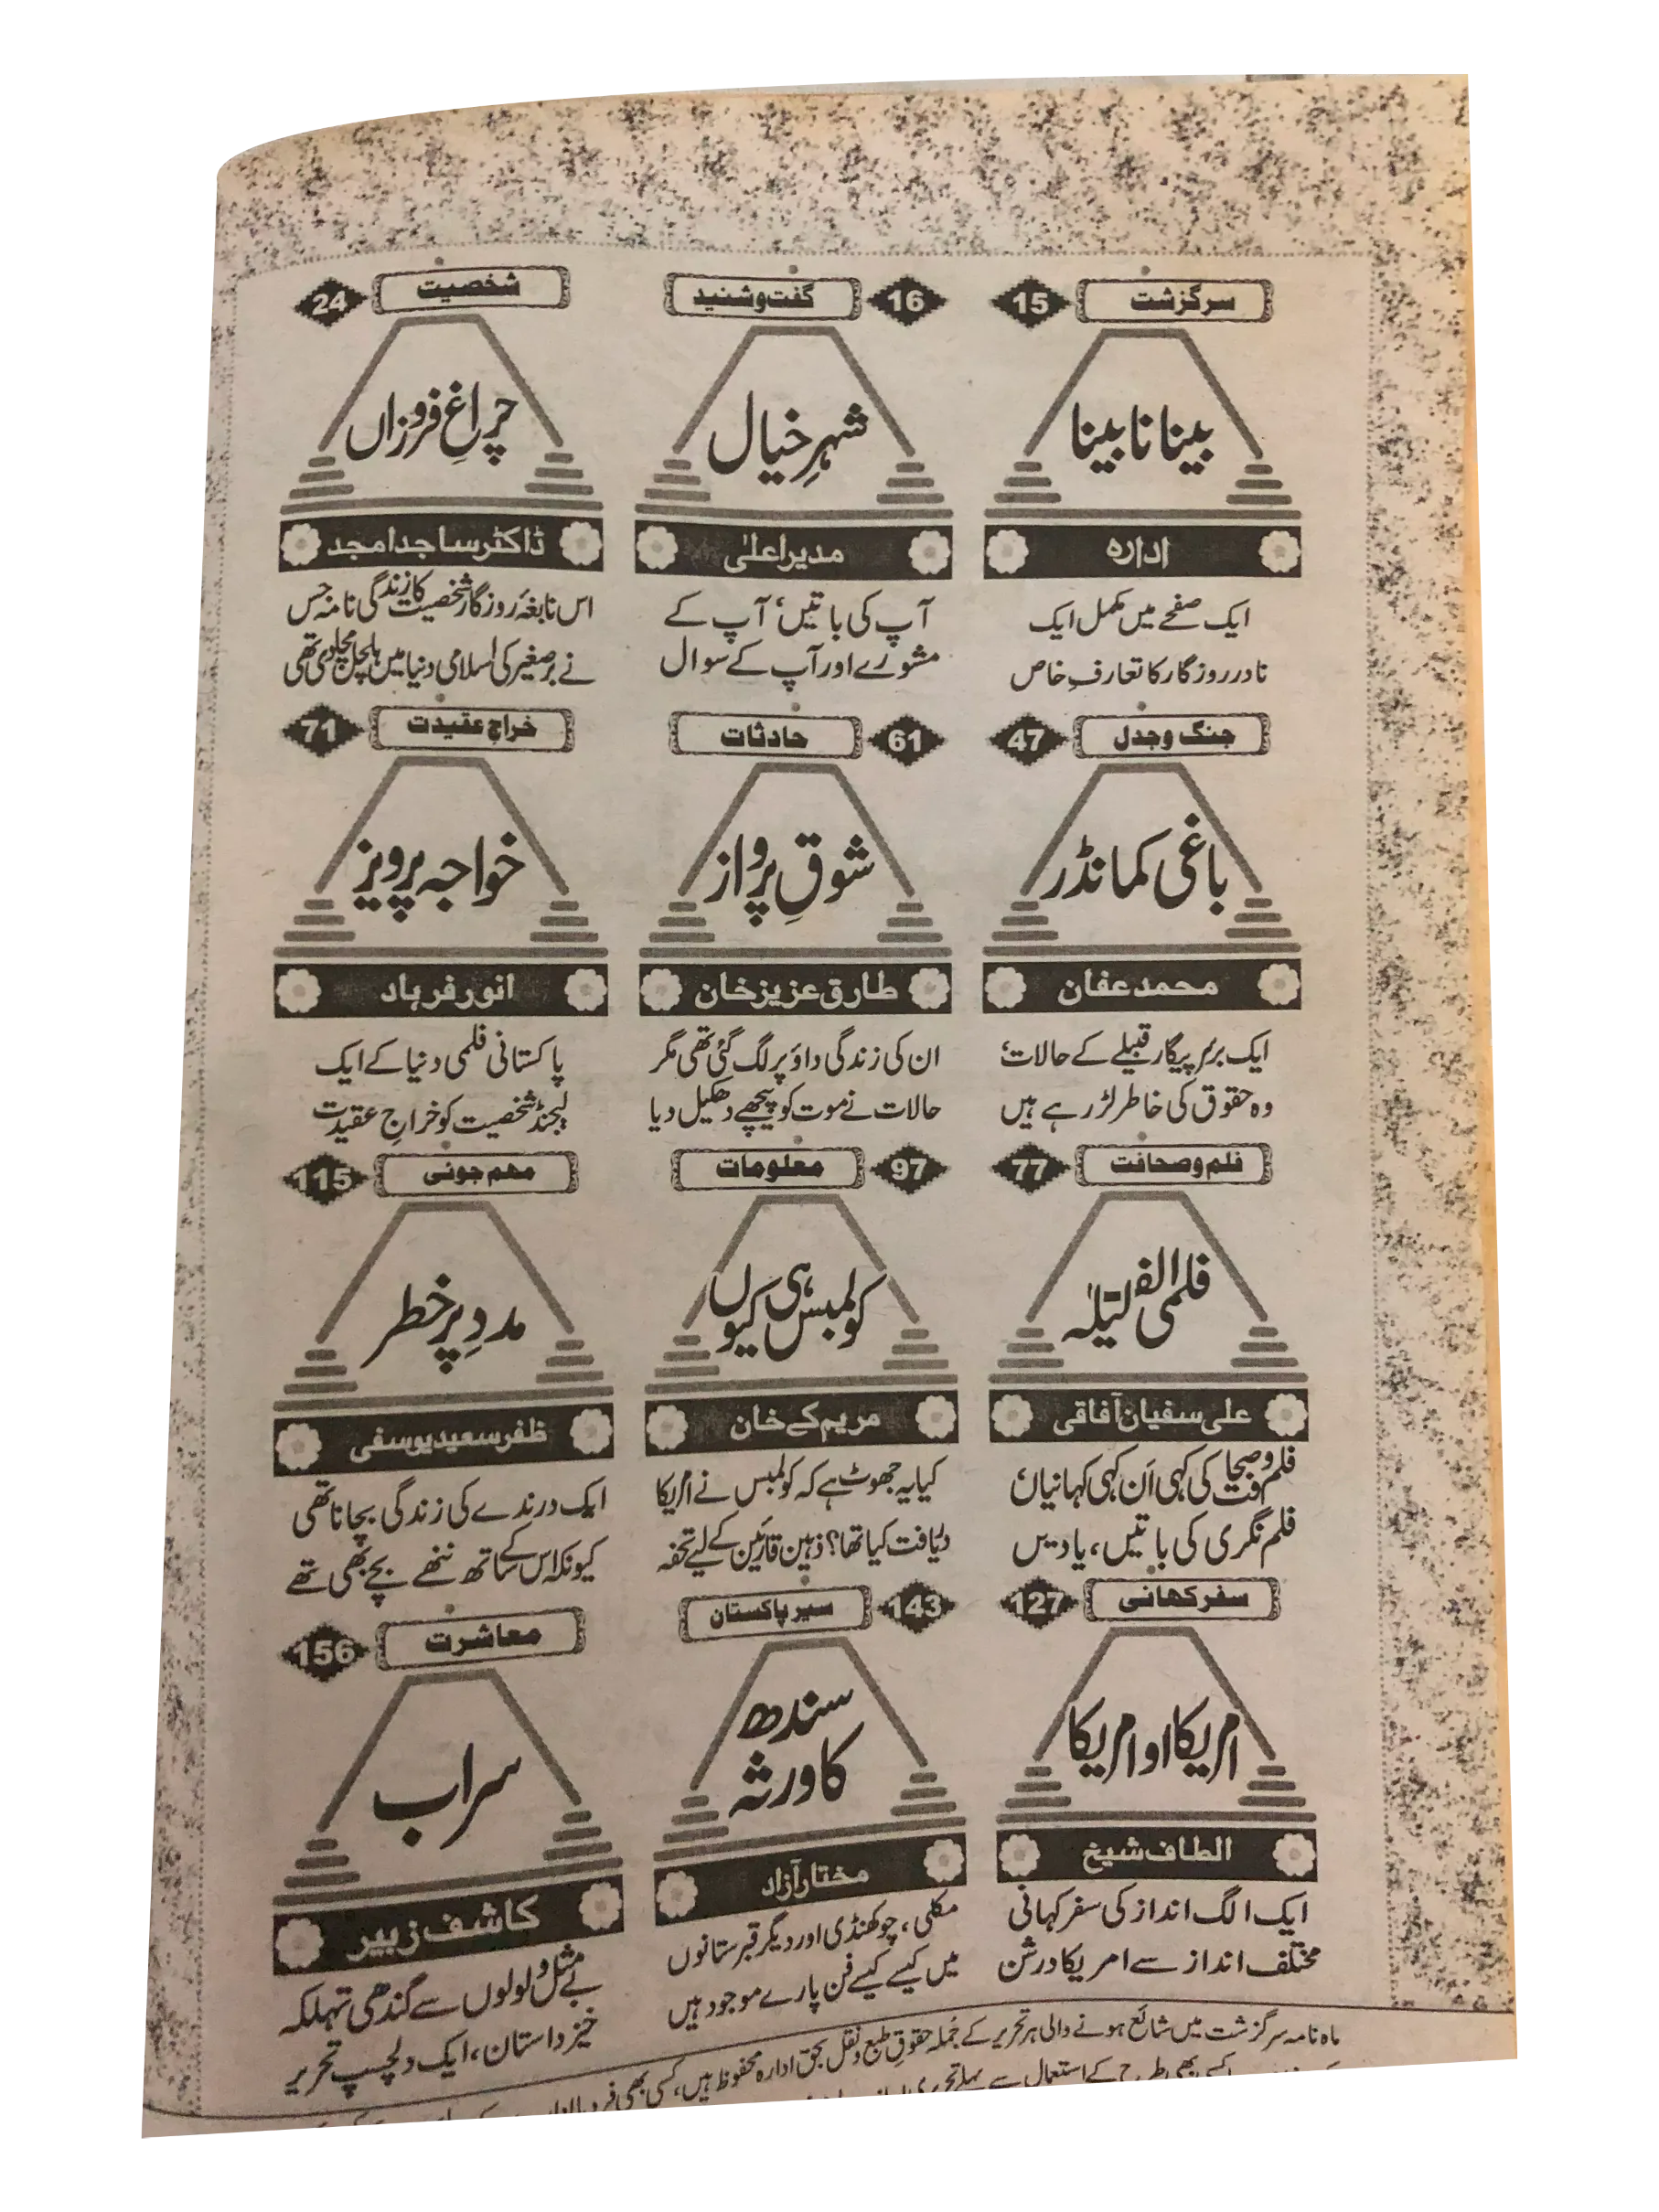 سرگزشت 15
بینا نابینا
ادارہ
ایک صفحے میں مکمل ایک
نادر روزگار کا تعارفِ خاص
گفت و شنید 16
شہرِ خیال
مدیر اعلیٰ
آپ کی باتیں، آپ کے
مشورے اور آپ کے سوال
شخصیت 24
چراغِ فروزاں
ڈاکٹر ساجد امجد
اس نابغۂ روزگار شخصیت کا زندگی نامہ جس
نے برصغیر کی اسلامی دنیا میں ہلچل مچا دی تھی
جنگ و جدل 47
باغی کمانڈر
محمد عفان
ایک برسرِ پیکار قبیلے کے حالات،
وہ حقوق کی خاطر لڑ رہے ہیں
حادثات 61
شوقِ پرواز
طارق عزیز خان
ان کی زندگی داؤ پر لگ گئی تھی مگر
حالات نے موت کو پیچھے دھکیل دیا
خراجِ عقیدت 71
خواجہ پرویز
انور فرہاد
پاکستانی فلمی دنیا کے ایک
لیجنڈ شخصیت کو خراجِ عقیدت
فلم و صحافت 77
فلمی الف لیلہ
علی سفیان آفاقی
فلم و صحافت کی کہی اَن کہی کہانیاں،
فلم نگری کی باتیں، یادیں
معلومات 97
کولمبس ہی کیوں
مریم کے خان
کیا یہ جھوٹ ہے کہ کولمبس نے امریکا
دریافت کیا تھا؟ ذہین قارئین کے لیے تحفہ
مہم جوئی 115
مددِ پرخطر
ظفر سعید یوسفی
ایک درندے کی زندگی بچانا تھی
کیونکہ اس کے ساتھ ننھے بچے بھی تھے
سفر کہانی 127
امریکا او امریکا
الطاف شیخ
ایک الگ انداز کی سفر کہانی
مختلف انداز سے امریکا درشن
سیر پاکستان 143
سندھ
کا ورثہ
مختار آزاد
مکلی، چوکھنڈی اور دیگر قبرستانوں
میں کیسے کیسے فن پارے موجود ہیں
معاشرت 156
سراب
کاشف زبیر
بے مثل ولولوں سے گندھی تہلکہ
خیز داستان، ایک دلچسپ تحریر
ماہنامہ سرگزشت میں شائع ہونے والی ہر تحریر کے جُملہ حقوقِ طبع و نقل بحق ادارہ محفوظ ہیں، کسی بھی فرد یا
کسی بھی طرح کے استعمال سے پہلے تحریری